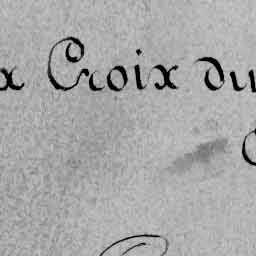 x Croix du